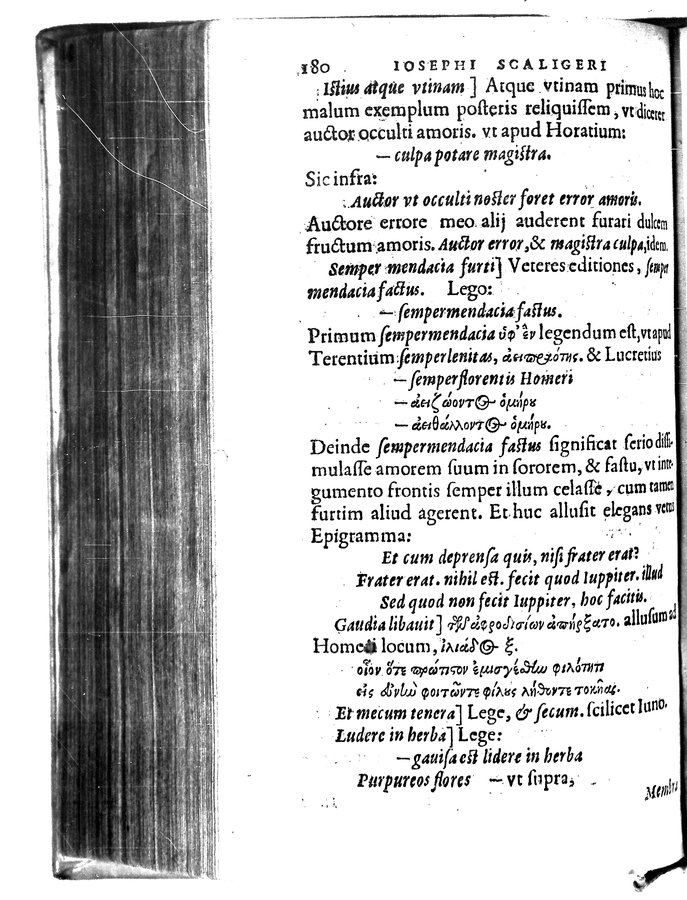 180 IOSEPHI SCALIGERI
Iſtius atque vtinam ] Atque vtinam primus hoc
malum exemplum poſteris reliquiſſem, vt diceret
auctor occulti amoris. vt apud Horatium:
— culpa potare magiſtra.
Sic infra:
Auctor vt occulti noſter foret error amoris.
Auctore errore meo alij auderent furari dulcem
fructum amoris. Auctor error, & magiſtra culpa, idem.
Semper mendacia furti] Veteres editiones, ſemper
mendacia factus. Lego:
— ſempermendacia faſtus.
Primum ſempermendacia ὑφ' ἓν legendum eſt, vt apud
Terentium ſemperlenitas, ἀειπραότης. & Lucretius
— ſemperflorentis Homeri
— ἀειζώοντος ὁμήρου
— ἀειθάλλοντος ὁμήρου.
Deinde ſempermendacia faſtus ſignificat ſerio diſſi-
mulaſſe amorem ſuum in ſororem, & faſtu, vt inte-
gumento frontis ſemper illum celaſſe, cum tamen
furtim aliud agerent. Et huc alluſit elegans vetus
Epigramma:
Et cum deprenſa quis, niſi frater erat?
Frater erat. nihil eſt. fecit quod Iuppiter. illud
Sed quod non fecit Iuppiter, hoc facitis.
Gaudia libauit] τῶν ἀφροδισίων ἀπήρξατο. alluſum ad
Homeri locum, ἰλιάδος ξ.
οἷον ὅτε πρώτιστον ἐμισγέσθην φιλότητι
εἰς εὐνὴν φοιτῶντε φίλους λήθοντε τοκῆας.
Et mecum tenera] Lege, & ſecum. ſcilicet Iuno.
Ludere in herba] Lege:
— gauiſa eſt lidere in herba
Purpureos flores — vt ſupra,
Membra